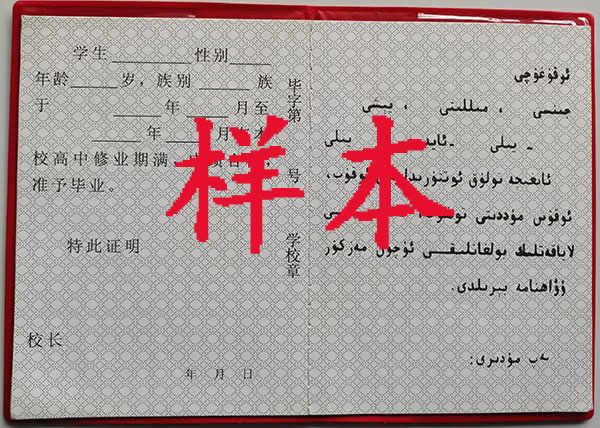 学生________ 性别____
年龄_____岁，族别_____ 族
于 _____年____月至
_____年____月
校高中修业期满
准予毕业。
特此证明
校长
年 月 日
毕字第
号
学校章
样本
ئوقۇغۇچى
جىنسى ، مىللىتى ، يېشى
ـ يىلى ـ يىلى
ئايغىچە تولۇق ئوتتۇرىدا ئوقۇپ،
ئوقۇش مۇددىتى توشۇپ
لاياقەتلىك بولغانلىقى ئۈچۈن مەزكۇر
بېرىلدى.
مەكتەپ مۇدىرى: